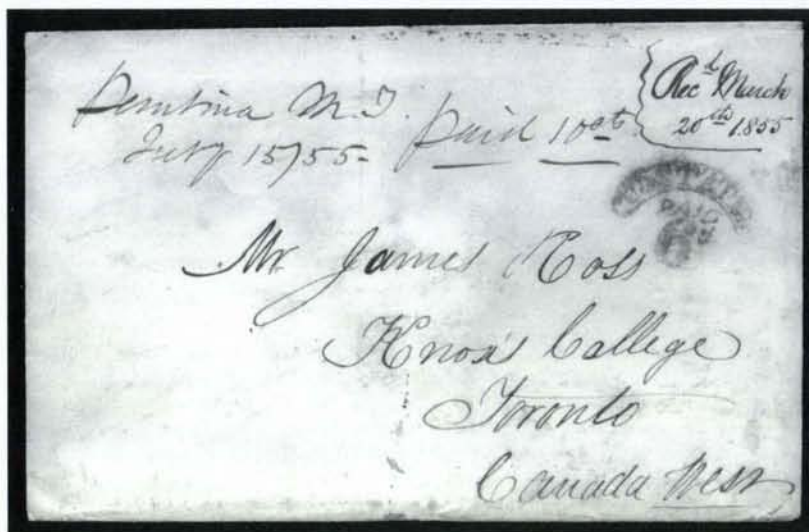 Pembina M.T. Paid 10cts
Feby 15/55-
Recd March
20th 1855
PAID
Mr James Ross
Knox's College
Toronto
Canada West